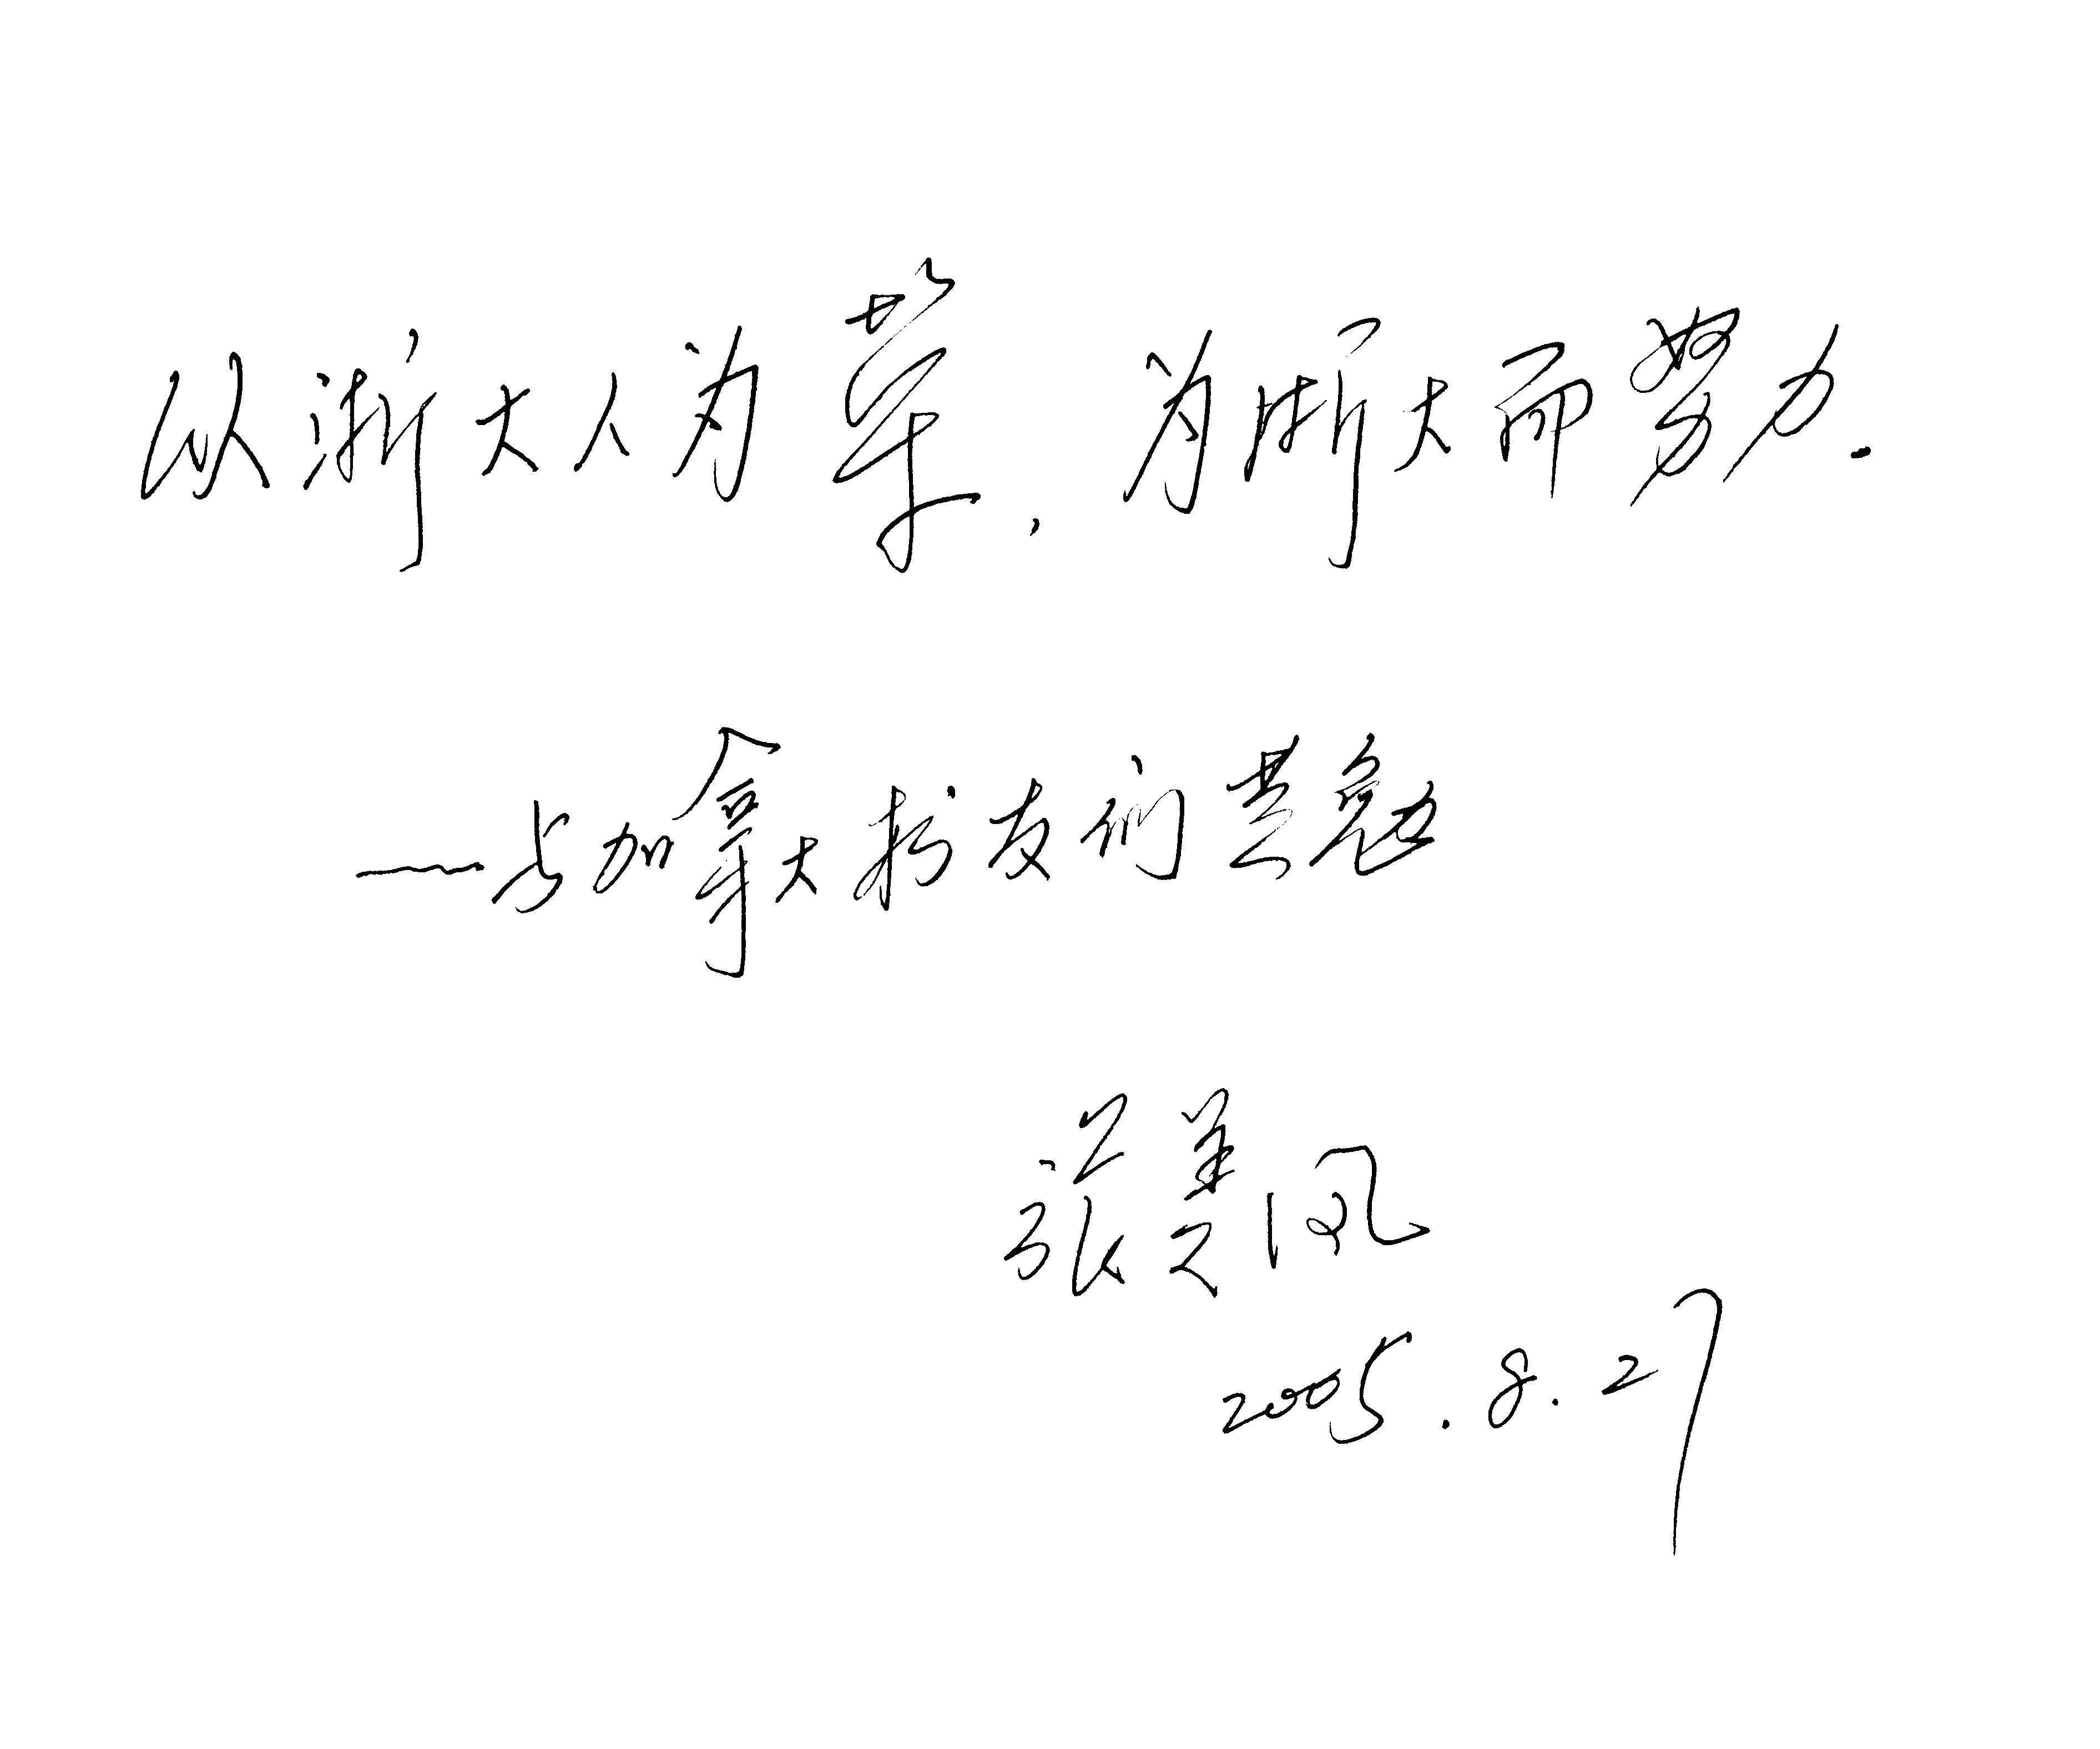 以浙大人为荣，为浙大而努力.
——与加拿大校友们共勉
张美凤
2005.8.27